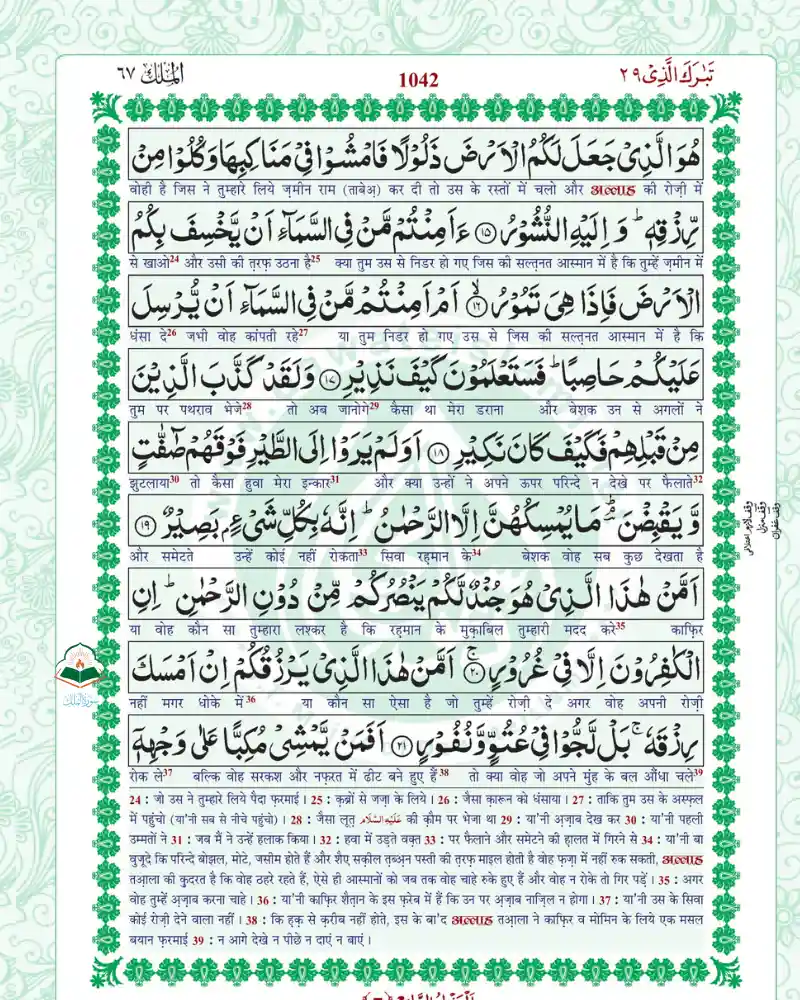 تَبٰرَكَ الَّذِىْ ٢٩
1042
الْمُلْك ٦٧
هُوَ الَّذِىْ جَعَلَ لَكُمُ الْاَرْضَ ذَلُوْلًا فَامْشُوْا فِىْ مَنَاكِبِهَا وَكُلُوْا مِنْ
वोही है जिस ने तुम्हारे लिये ज़मीन राम (ताबेअ़) कर दी तो उस के रस्तों में चलो और अल्लाह की रोज़ी में
رِّزْقِهٖ ؕ وَ اِلَيْهِ النُّشُوْرُ ﴿١٥﴾ ءَاَمِنْتُمْ مَّنْ فِى السَّمَآءِ اَنْ يَّخْسِفَ بِكُمُ
से खाओ24 और उसी की त़रफ़ उठना है25 क्या तुम उस से निडर हो गए जिस की सल्त़नत आस्मान में है कि तुम्हें ज़मीन में
الْاَرْضَ فَاِذَا هِىَ تَمُوْرُ ﴿١٦﴾ ۙ اَمْ اَمِنْتُمْ مَّنْ فِى السَّمَآءِ اَنْ يُّرْسِلَ
धंसा दे26 जभी वोह कांपती रहे27 या तुम निडर हो गए उस से जिस की सल्त़नत आस्मान में है कि
عَلَيْكُمْ حَاصِبًا ؕ فَسَتَعْلَمُوْنَ كَيْفَ نَذِيْرِ ﴿١٧﴾ وَلَقَدْ كَذَّبَ الَّذِيْنَ
तुम पर पथराव भेजे28 तो अब जानोगे29 कैसा था मेरा डराना और बेशक उन से अगलों ने
مِنْ قَبْلِهِمْ فَكَيْفَ كَانَ نَكِيْرِ ﴿١٨﴾ اَوَلَمْ يَرَوْا اِلَى الطَّيْرِ فَوْقَهُمْ صٰٓفّٰتٍ
झुटलाया30 तो कैसा हुवा मेरा इन्कार31 और क्या उन्हों ने अपने ऊपर परिन्दे न देखे पर फैलाते32
وَّ يَقْبِضْنَ ؔۘ مَا يُمْسِكُهُنَّ اِلَّا الرَّحْمٰنُ ؕ اِنَّهٗ بِكُلِّ شَىْءٍۭ بَصِيْرٌ ﴿١٩﴾
और समेटते उन्हें कोई नहीं रोकता33 सिवा रह़मान के34 बेशक वोह सब कुछ देखता है
اَمَّنْ هٰذَا الَّذِىْ هُوَ جُنْدٌ لَّكُمْ يَنْصُرُكُمْ مِّنْ دُوْنِ الرَّحْمٰنِ ؕ اِنِ
या वोह कौन सा तुम्हारा लश्कर है कि रह़मान के मुक़ाबिल तुम्हारी मदद करे35 काफ़िर
الْكٰفِرُوْنَ اِلَّا فِىْ غُرُوْرٍ ﴿٢٠﴾ ۚ اَمَّنْ هٰذَا الَّذِىْ يَرْزُقُكُمْ اِنْ اَمْسَكَ
नहीं मगर धोके में36 या कौन सा ऐसा है जो तुम्हें रोज़ी दे अगर वोह अपनी रोज़ी
رِزْقَهٗ ۚ بَلْ لَّجُّوْا فِىْ عُتُوٍّ وَّ نُفُوْرٍ ﴿٢١﴾ اَفَمَنْ يَّمْشِىْ مُكِبًّا عَلٰى وَجْهِهٖۤ
रोक ले37 बल्कि वोह सरकश और नफ़रत में ढीट बने हुए हैं38 तो क्या वोह जो अपने मुंह के बल औंधा चले39
24 : जो उस ने तुम्हारे लिये पैदा फ़रमाई । 25 : क़ब्रों से जज़ा के लिये । 26 : जैसा क़ारून को धंसाया । 27 : ताकि तुम उस के अस्फ़ल
में पहुंचो (या'नी सब से नीचे पहुंचो) । 28 : जैसा लूत़ عَلَيْهِ السَّلَام की क़ौम पर भेजा था 29 : या'नी अ़ज़ाब देख कर 30 : या'नी पहली
उम्मतों ने 31 : जब मैं ने उन्हें हलाक किया । 32 : हवा में उड़ते वक़्त 33 : पर फैलाने और समेटने की ह़ालत में गिरने से 34 : या'नी बा
वुजूदे कि परिन्दे बोझल, मोटे, जसीम होते हैं और शैए सक़ील त़ब्अ़न पस्ती की त़रफ़ माइल होती है वोह फ़ज़ा में नहीं रुक सकती, अल्लाह
तआ़ला की क़ुदरत है कि वोह ठहरे रहते हैं, ऐसे ही आस्मानों को जब तक वोह चाहे रुके हुए हैं और वोह न रोके तो गिर पड़ें । 35 : अगर
वोह तुम्हें अ़ज़ाब करना चाहे । 36 : या'नी काफ़िर शैत़ान के इस फ़रेब में हैं कि उन पर अ़ज़ाब नाज़िल न होगा । 37 : या'नी उस के सिवा
कोई रोज़ी देने वाला नहीं । 38 : कि ह़क़ से क़रीब नहीं होते, इस के बा'द अल्लाह तआ़ला ने काफ़िर व मोमिन के लिये एक मसल
बयान फ़रमाई 39 : न आगे देखे न पीछे न दाएं न बाएं ।